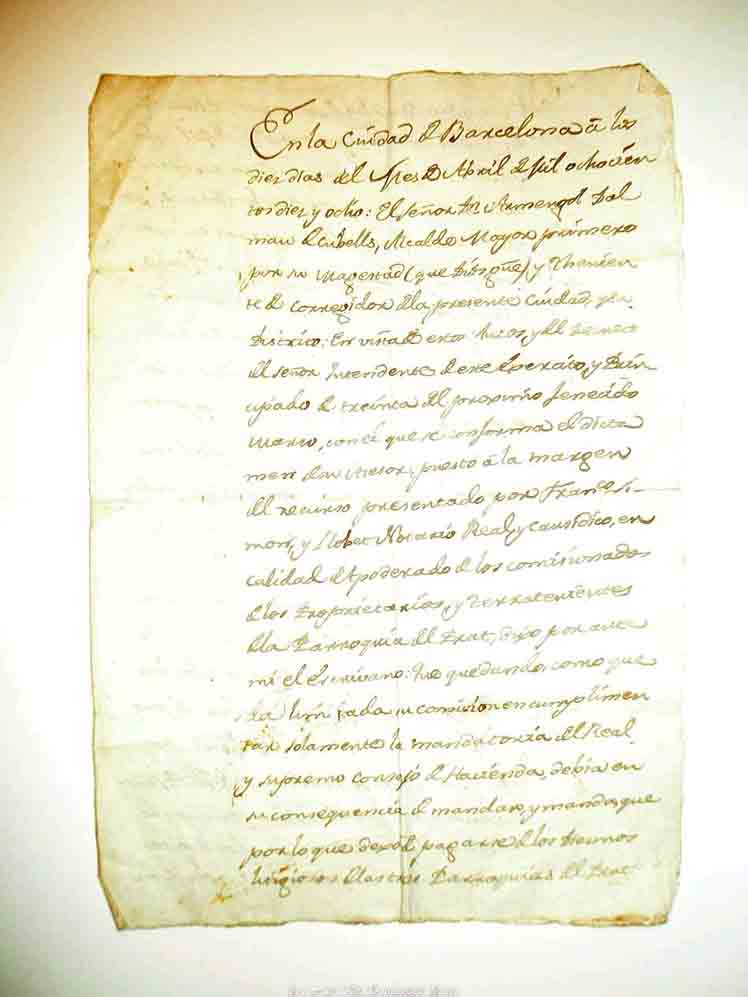 En la Ciudad de Barcelona á los
diez dias del Mes de Abril de Mil ochocien
tos diez y ocho: El señor Dn Armengol Dal
mau de Cubells, Alcalde Mayor primero
por su Magestad (que Dios gũe) y Thenien
te de Corregidor de la presente Ciudad, y su
Distrito: En vista de estos Autos, y del Decreto
del señor Intendente de este Exercito, y Prin
cipado de treinta del proximo
Marzo, con el que se conforma el dicta
men de su Asesor, puesto á la margen
del recurso presentado por Franco Si-
mon, y Llobet Notario Real, y Causidico, en
calidad de Apoderado de los comisionados
de los Proprietarios, y Terratenientes
de la Parroquia del Prat, dixo por ante
mi el Escrivano: Que quedando, como que
da limitada su comision en cumplimen
tar solamente la mandatoria del Real
y supremo Consejo de Hacienda, debia en
su consequencia de mandar, y manda, que
por lo que dexó de pagarse de los
litigiosos de las tres Parroquias del Prat